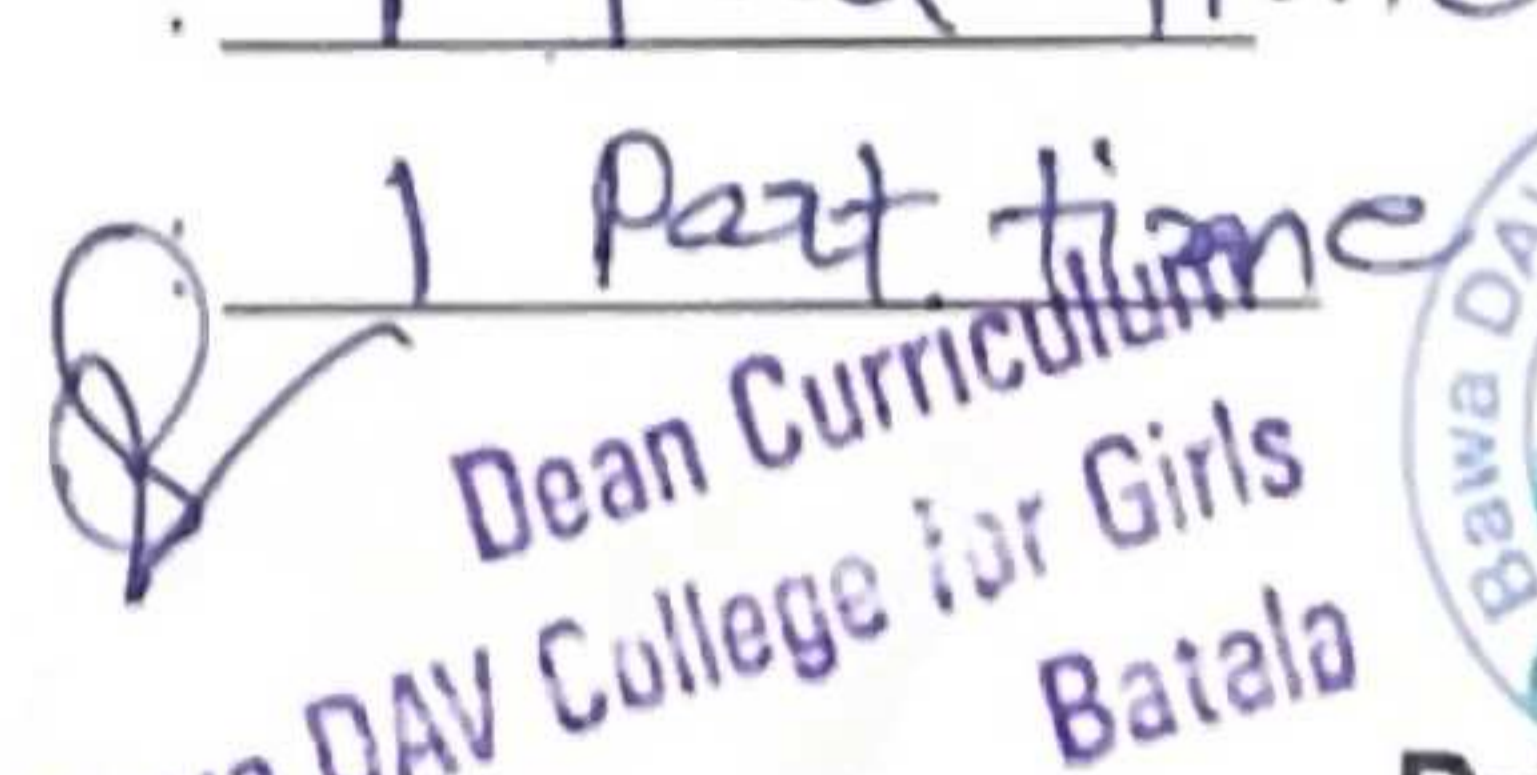 1 Part time
Dean Curriculum
DAV College for Girls
Batala
Bawa DA